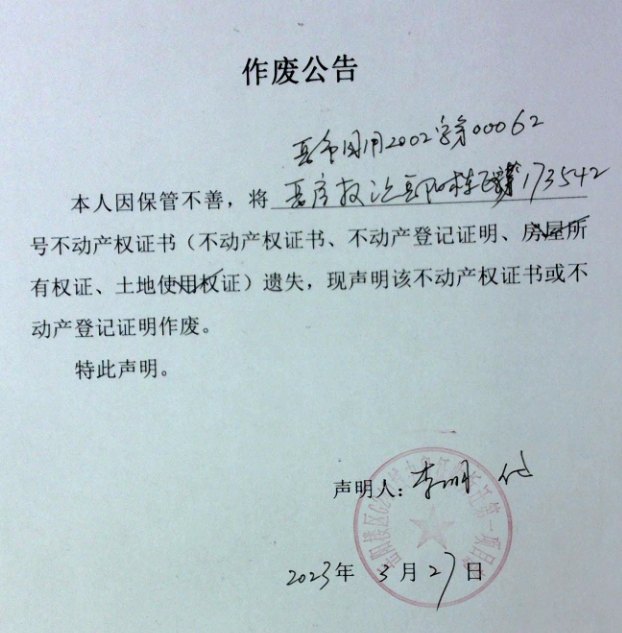 作废公告
国用2002字第00062
本人因保管不善，将 房权证岳阳楼区第173542
号不动产权证书（不动产权证书、不动产登记证明、房屋所
有权证、土地使用权证）遗失，现声明该不动产权证书或不
动产登记证明作废。
特此声明。
声明人：李明 代
2023年 3月27日